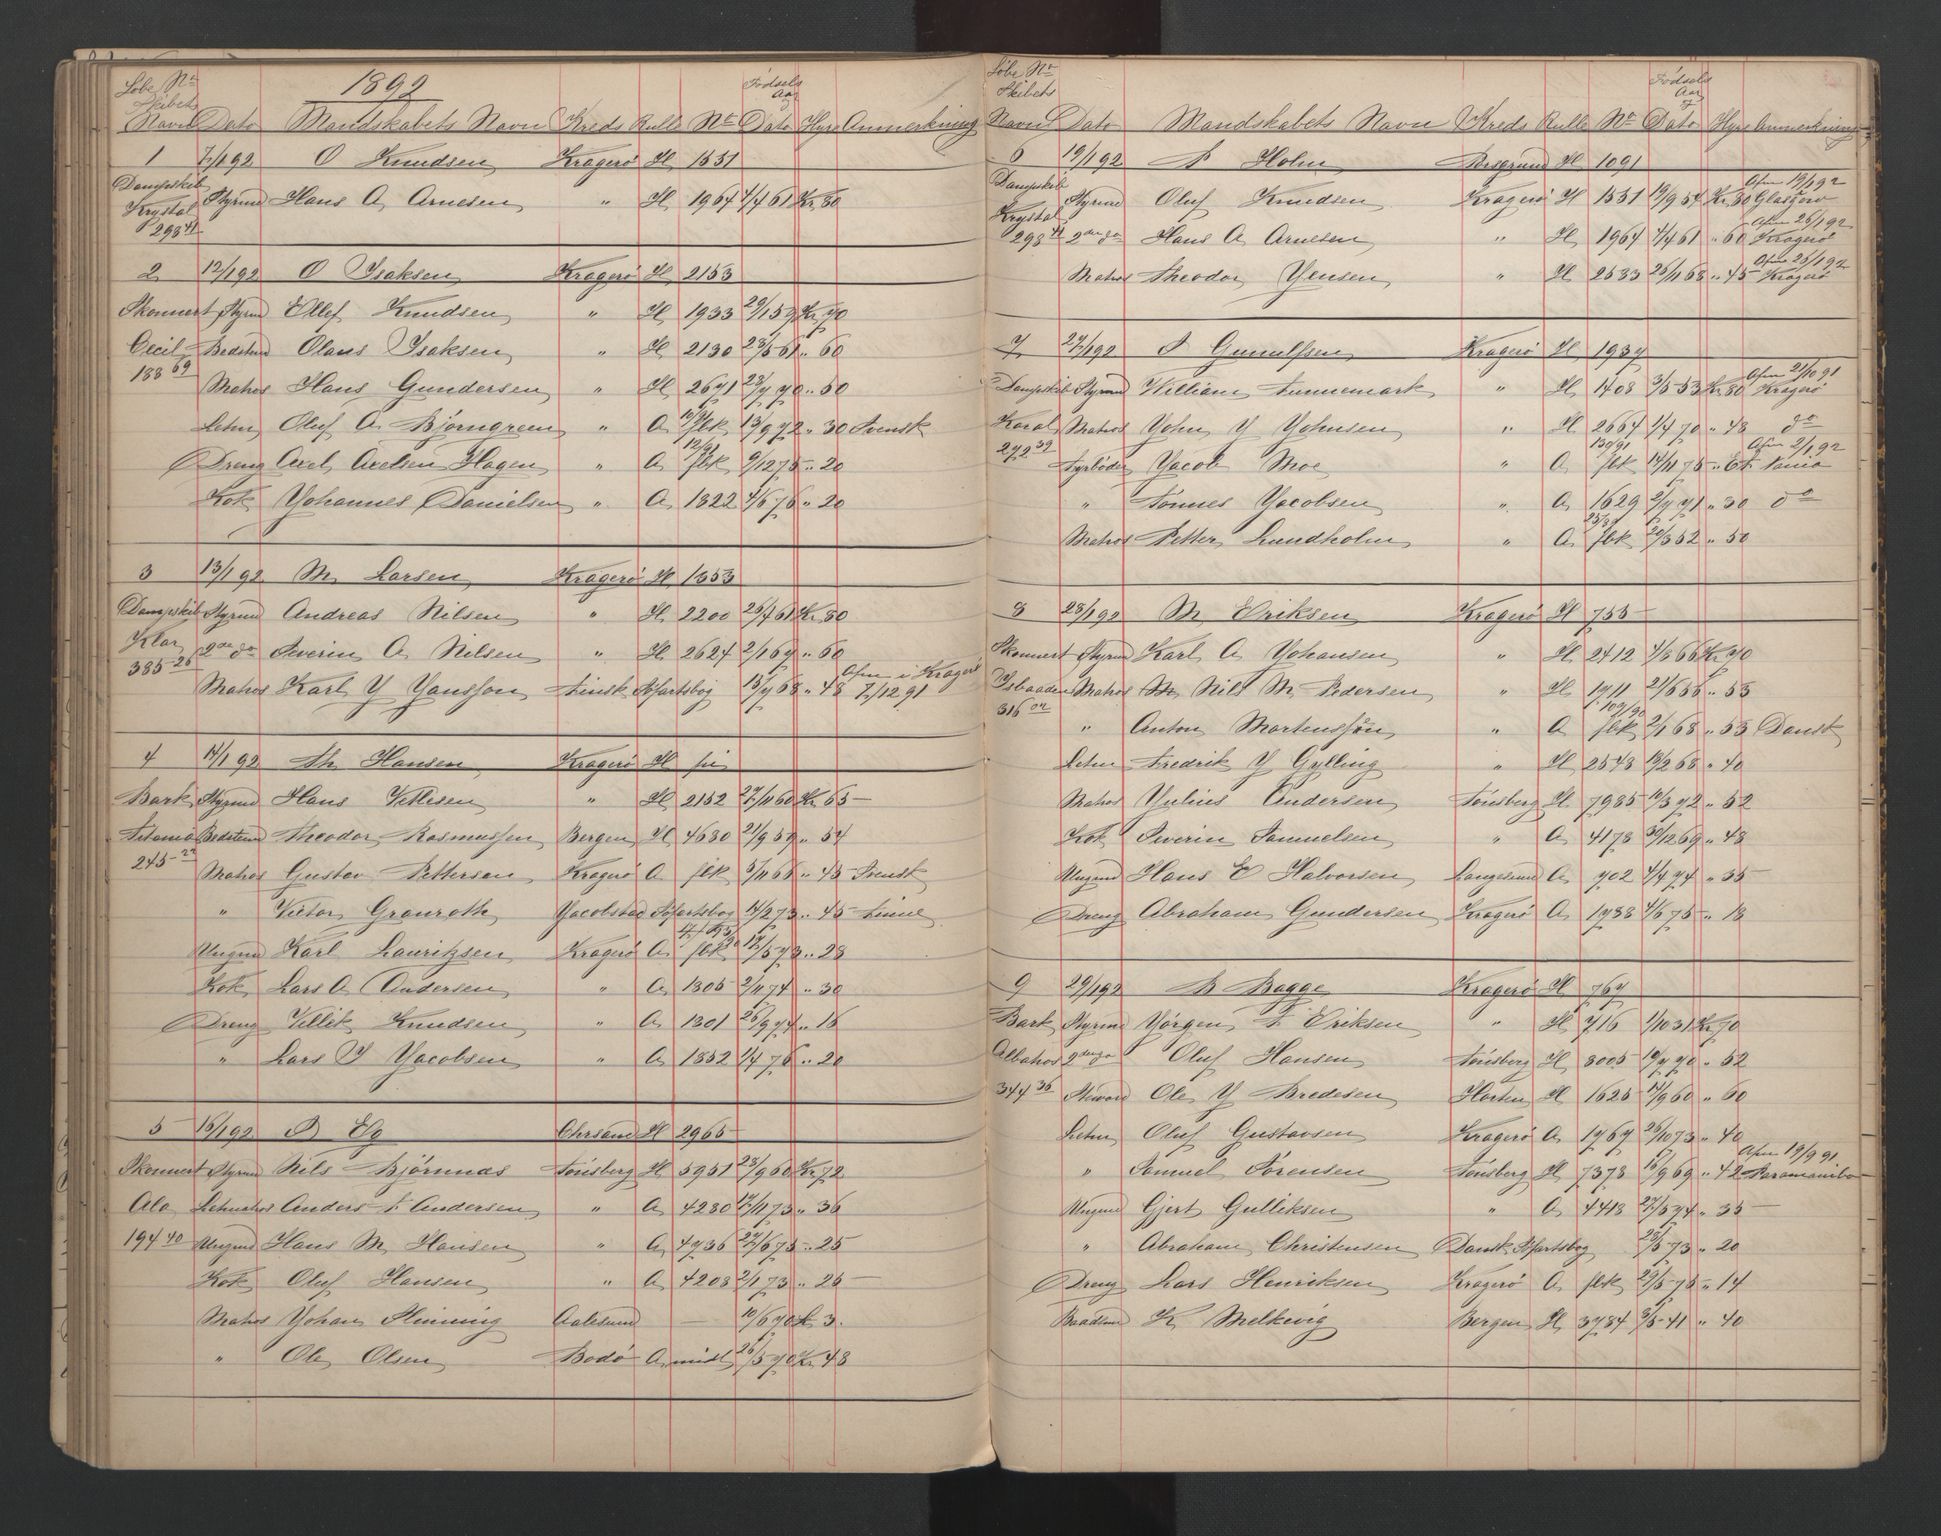 1892
Løbe No Skibets Navn Dato Mandskabets Navn Kreds Rulle No Fødsels Aar Dato Hyre Anmerkning
1 7/1 92 O Knudsen Kragerø H 1551
Dampskib Styrmd Hans A Arnesen " H 1964 4/4 61 Kr. 80
Krystal
298 41
2 12/1 92 O Isaksen Kragerø H 2153
Skonnert Styrmd Ellef Knudsen " H 1933 29/1 59 Kr. 70
Cecil Bedstmd Olaus Isaksen " H 2130 23/5 61 " 60
188 69
Matros Hans Gundersen " H 2671 23/7 70 " 50
Letm Oluf A Bjørngreen " A flk 13/9 72 " 30 Svensk
Dreng Axel Axelsen Hagen " A 12/91 flk 9/12 75 " 20
Kok Johannes Danielsen " A 1822 4/6 76 " 20
3 13/1 92 M Larsen Kragerø H 1353
Dampskib Styrmd Andreas Nilsen " H 2200 Kr. 80
Klar 2den do Severin A Nilsen " H 2624 2/1 67 " 60
385 26
Matros Karl J Jansson Finsk Søfartsbog 15/7 68 " 48 Afm i Kragerø 7/12 91
4 14/1 92 Th Hansen Kragerø H
Bark Styrmd Hans Vetlesen " H 2152 27/11 60 Kr. 65
Titania Bedstmd Theodor Rasmussen Bergen H 4630 21/9 59 " 54
245 22
Matros Gustav Pettersen Kragerø A flk 5/11 66 " 45 Svensk
" Victor Granroth Jacobstad Søfartsbog 14/2 73 " 45 Finne
Ungmd Karl Lauritzsen Kragerø A flk 17/5 73 " 28
Kok Lars A Andersen " A 1805 2/11 74 " 30
Dreng Vellik Knudsen " A 1801 26/9 77 " 16
" Lars J Jacobsen " A 1852 1/4 76 " 20
5 16/1 92 B Eg Chrsand H 2965
Skonnert Styrmd Nils Bjørnnæs Tønsberg H 5951 23/9 60 Kr. 72
Alo Letmatros Anders F Andersen " A 4280 17/11 73 " 36
194 40 Ungmd Hans M Hansen " A 4736 27/6 75 " 25
Kok Oluf Hansen " A 4208 2/1 73 " 25
Matros Johan Hinning Aalesund — 10/6 70 3.
" Ole Olsen Bodø A midl 26/5 70 Kr 48
Løbe No Skibets Navn Dato Mandskabets Navn Kreds Rulle No Fødsels Aar og Dato Hyre Anmerkning
6 19/1 92 P Holm Porsgrund H 1091
Dampskib Styrmd Oluf Knudsen Kragerø H 1551 19/9 54 Kr. 80 Afm 19/1 92 Glasgow
Krystal
298 41 2den do Hans A Arnesen " H 1964 4/4 61 " 60 Afm 26/1 92 Kragerø
Matros Theodor Jensen " H 2533 26/11 68 " 45 Afm 23/1 92 Kragerø
7 27/1 92 P Gunulfsen Kragerø H 1937
Dampskib Styrmd William Tinnemark " H 1408 3/5 53 Kr. 80 Afm 21/10 91 Kragerø
Koral Matros John J Johnsen " H 2664 1/4 70 " 48 do
272 39
Fyrbøder Jacob Moe " A flk 14/11 75 " Afm 2/1 92
" Tønnes Jacobsen " A 1629 2/7 71 " 30 do
Matros Petter Lundholm " A flk 52 " 50
8 28/1 92 M Eriksen Kragerø H 755
Skonnert Styrmd Karl A Johansen " H 2412 4/3 66 Kr. 70
Isbaaden Matros M Nils M Pedersen " H 1711 21/6 56 " 55
316 02
" Anton Martenssøn " A flk 2/1 68 " 53 Dansk
Letm Fredrik J Gylling " H 2548 68 " 40
Matros Julius Andersen Tønsberg H 7985 10/3 72 " 52
Kok Severin Samuelsen " A 4178 30/12 69 " 48
Ungmd Hans E Halvorsen Langesund A 702 4/4 74 " 35
Dreng Abraham Gundersen Kragerø A 1738 4/6 75 " 18
9 29/1 92 B Bagge Kragerø H 767
Bark Styrmd Jørgen F Eriksen " H 716 1/10 31 Kr. 70
Albatros 2den do Oluf Hansen Tønsberg H 8005 10/7 70 " 52
344 36 Steward Ole J Bredesen Horten H 1625 14/9 60 " 60
Letm Oluf Gustavsen Kragerø A 1767 26/10 73 " 40
" Samuel Sørensen Tønsberg H 7378 16/9 69 " 42 Afm 19/9 91
Ungmd Gjert Gulliksen " A 4418 27/5 74 " 35
" Abraham Christensen Dansk Søfartsbog 23/5 73 " 20
Dreng Lars Henriksen Kragerø A flk 29/5 75 " 14
Baadsmd K Melkevig Bergen H 3784 41 " 40